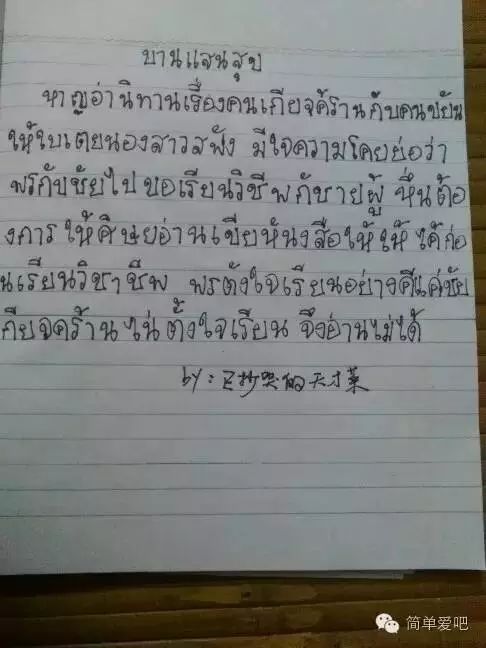 บานแสนสุข
หาญอ่านิทานเรื่องคนเกียจคร้านกับคนขยัน
ให้ใบเตยนองสาวสฟัง มีใจความโดยย่อว่า
พรกับชัยไปขอเรียนวิชีพกัชายผู้ หึ่นต้อ
งการให้ศิษยอ่านเขียหนงสือให้ให้ ได้ก่อ
นเรียนวิชาชีพ พรตังใจเรียนอย่างดีแค่ชัย
กียจคร้านไน่ตั้งใจเรียน จึงอ่านไม่ได้
by: 已抄哭的天才菜
简单爱吧